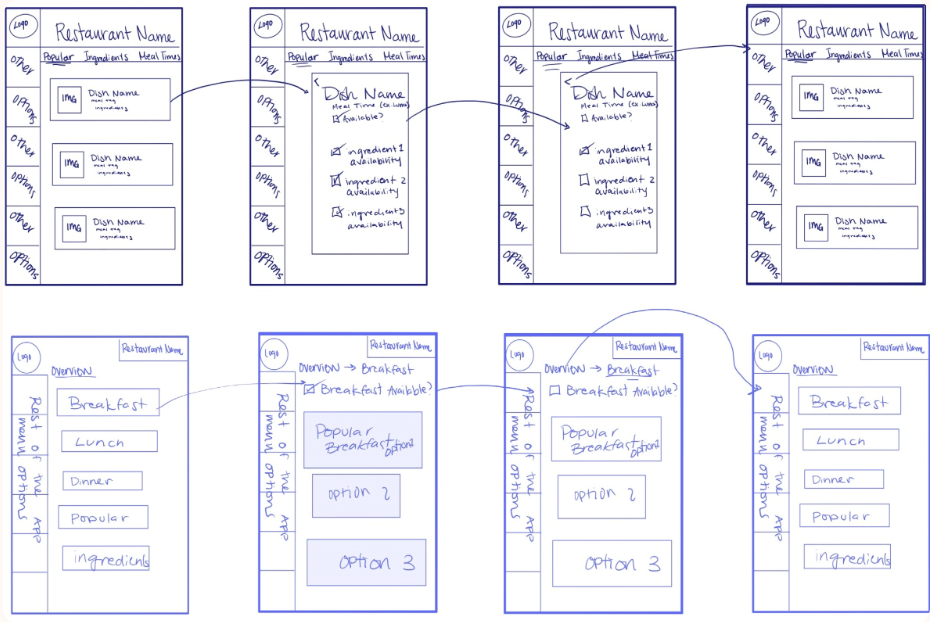 Logo
Restaurant Name
Popular Ingredients Meal Times
Other
Options
Other
Options
Other
Options
IMG
Dish Name
meal tag
ingredients
IMG
Dish Name
meal tag
ingredients
IMG
Dish Name
meal tag
ingredients
Logo
Restaurant Name
Popular Ingredients Meal Times
Other
Options
Other
Options
Other
Options
<
Dish Name
Meal Time (ex Lunch)
Available?
ingredient 1
availability
ingredient 2
availability
ingredient 3
availability
Logo
Restaurant Name
Popular Ingredients Meal Times
Other
Options
Other
Options
Other
Options
<
Dish Name
Meal Time (ex Lunch)
Available?
ingredient 1
availability
ingredient 2
availability
ingredient 3
availability
Logo
Restaurant Name
Popular Ingredients Meal Times
Other
Options
Other
Options
Other
Options
IMG
Dish Name
meal tag
ingredients
IMG
Dish Name
meal tag
ingredients
IMG
Dish Name
meal tag
ingredients
Logo
Restaurant Name
Overview
Rest of the App
menu options
Breakfast
Lunch
Dinner
Popular
ingredients
Logo
Restaurant Name
Overview → Breakfast
Breakfast Available?
Rest of the App
menu options
Popular
Breakfast option
option 2
option 3
Logo
Restaurant Name
Overview → Breakfast
Breakfast Available?
Rest of the App
menu options
Popular
Breakfast option
option 2
option 3
Logo
Restaurant Name
Overview
Rest of the App
menu options
Breakfast
Lunch
Dinner
Popular
ingredients